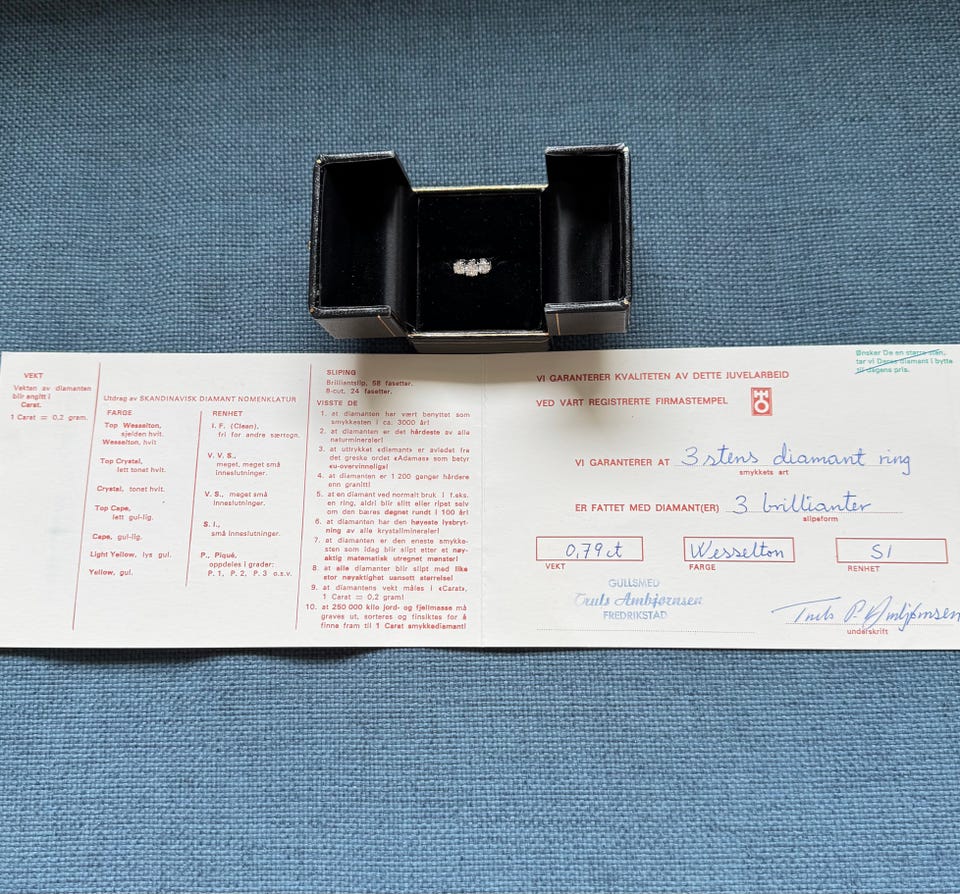 VEKT
Vekten av diamanten
blir angitt i
Carat.
1 Carat = 0,2 gram.
Utdrag av SKANDINAVISK DIAMANT NOMENKLATUR
FARGE
Top Wesselton,
sjelden hvit.
Wesselton, hvit
Top Crystal,
lett tonet hvit.
Crystal, tonet hvit.
Top Cape,
lett gul-lig.
Cape, gul-lig.
Light Yellow, lys gul.
Yellow, gul.
RENHET
I. F. (Clean),
fri for andre særtegn.
V. V. S.,
meget, meget små
inneslutninger.
V. S., meget små
inneslutninger.
S. I.,
små inneslutninger.
P., Piqué,
oppdeles i grader:
P. 1, P. 2, P. 3 o.s.v.
SLIPING
Brilliantslip, 58 fasetter.
8-cut, 24 fasetter.
VISSTE DE
1. at diamanten har vært benyttet som
smykkesten i ca. 3000 år!
2. at diamanten er det hårdeste av alle
naturmineraler!
3. at uttrykket «diamant» er avledet fra
det greske ordet «Adamas» som betyr
«u-overvinnelig»!
4. at diamanten er 1 200 ganger hårdere
enn granitt!
5. at en diamant ved normalt bruk i f.eks.
en ring, aldri blir slitt eller ripet selv
om den bæres døgnet rundt i 100 år!
6. at diamanten har den høyeste lysbryt-
ning av alle krystallmineraler!
7. at diamanten er den eneste smykke-
sten som idag blir slipt etter et nøy-
aktig matematisk utregnet mønster!
8. at alle diamanter blir slipt med like
stor nøyaktighet uansett størrelse!
9. at diamantens vekt måles i «Carat»,
1 Carat = 0,2 gram!
10. at 250 000 kilo jord- og fjellmasse må
graves ut, sorteres og finsiktes for å
finne fram til 1 Carat smykkediamant!
Ønsker De en større sten,
tar vi Deres diamant i bytte
til dagens pris.
VI GARANTERER KVALITETEN AV DETTE JUVELARBEID
VED VÅRT REGISTRERTE FIRMASTEMPEL
VI GARANTERER AT 3 stens diamant ring
smykkets art
ER FATTET MED DIAMANT(ER) 3 brillianter
slipeform
0,79 ct Wesselton SI
VEKT FARGE RENHET
GULLSMED
Truls Ambjørnsen
FREDRIKSTAD
Truls P. Ambjørnsen
underskrift